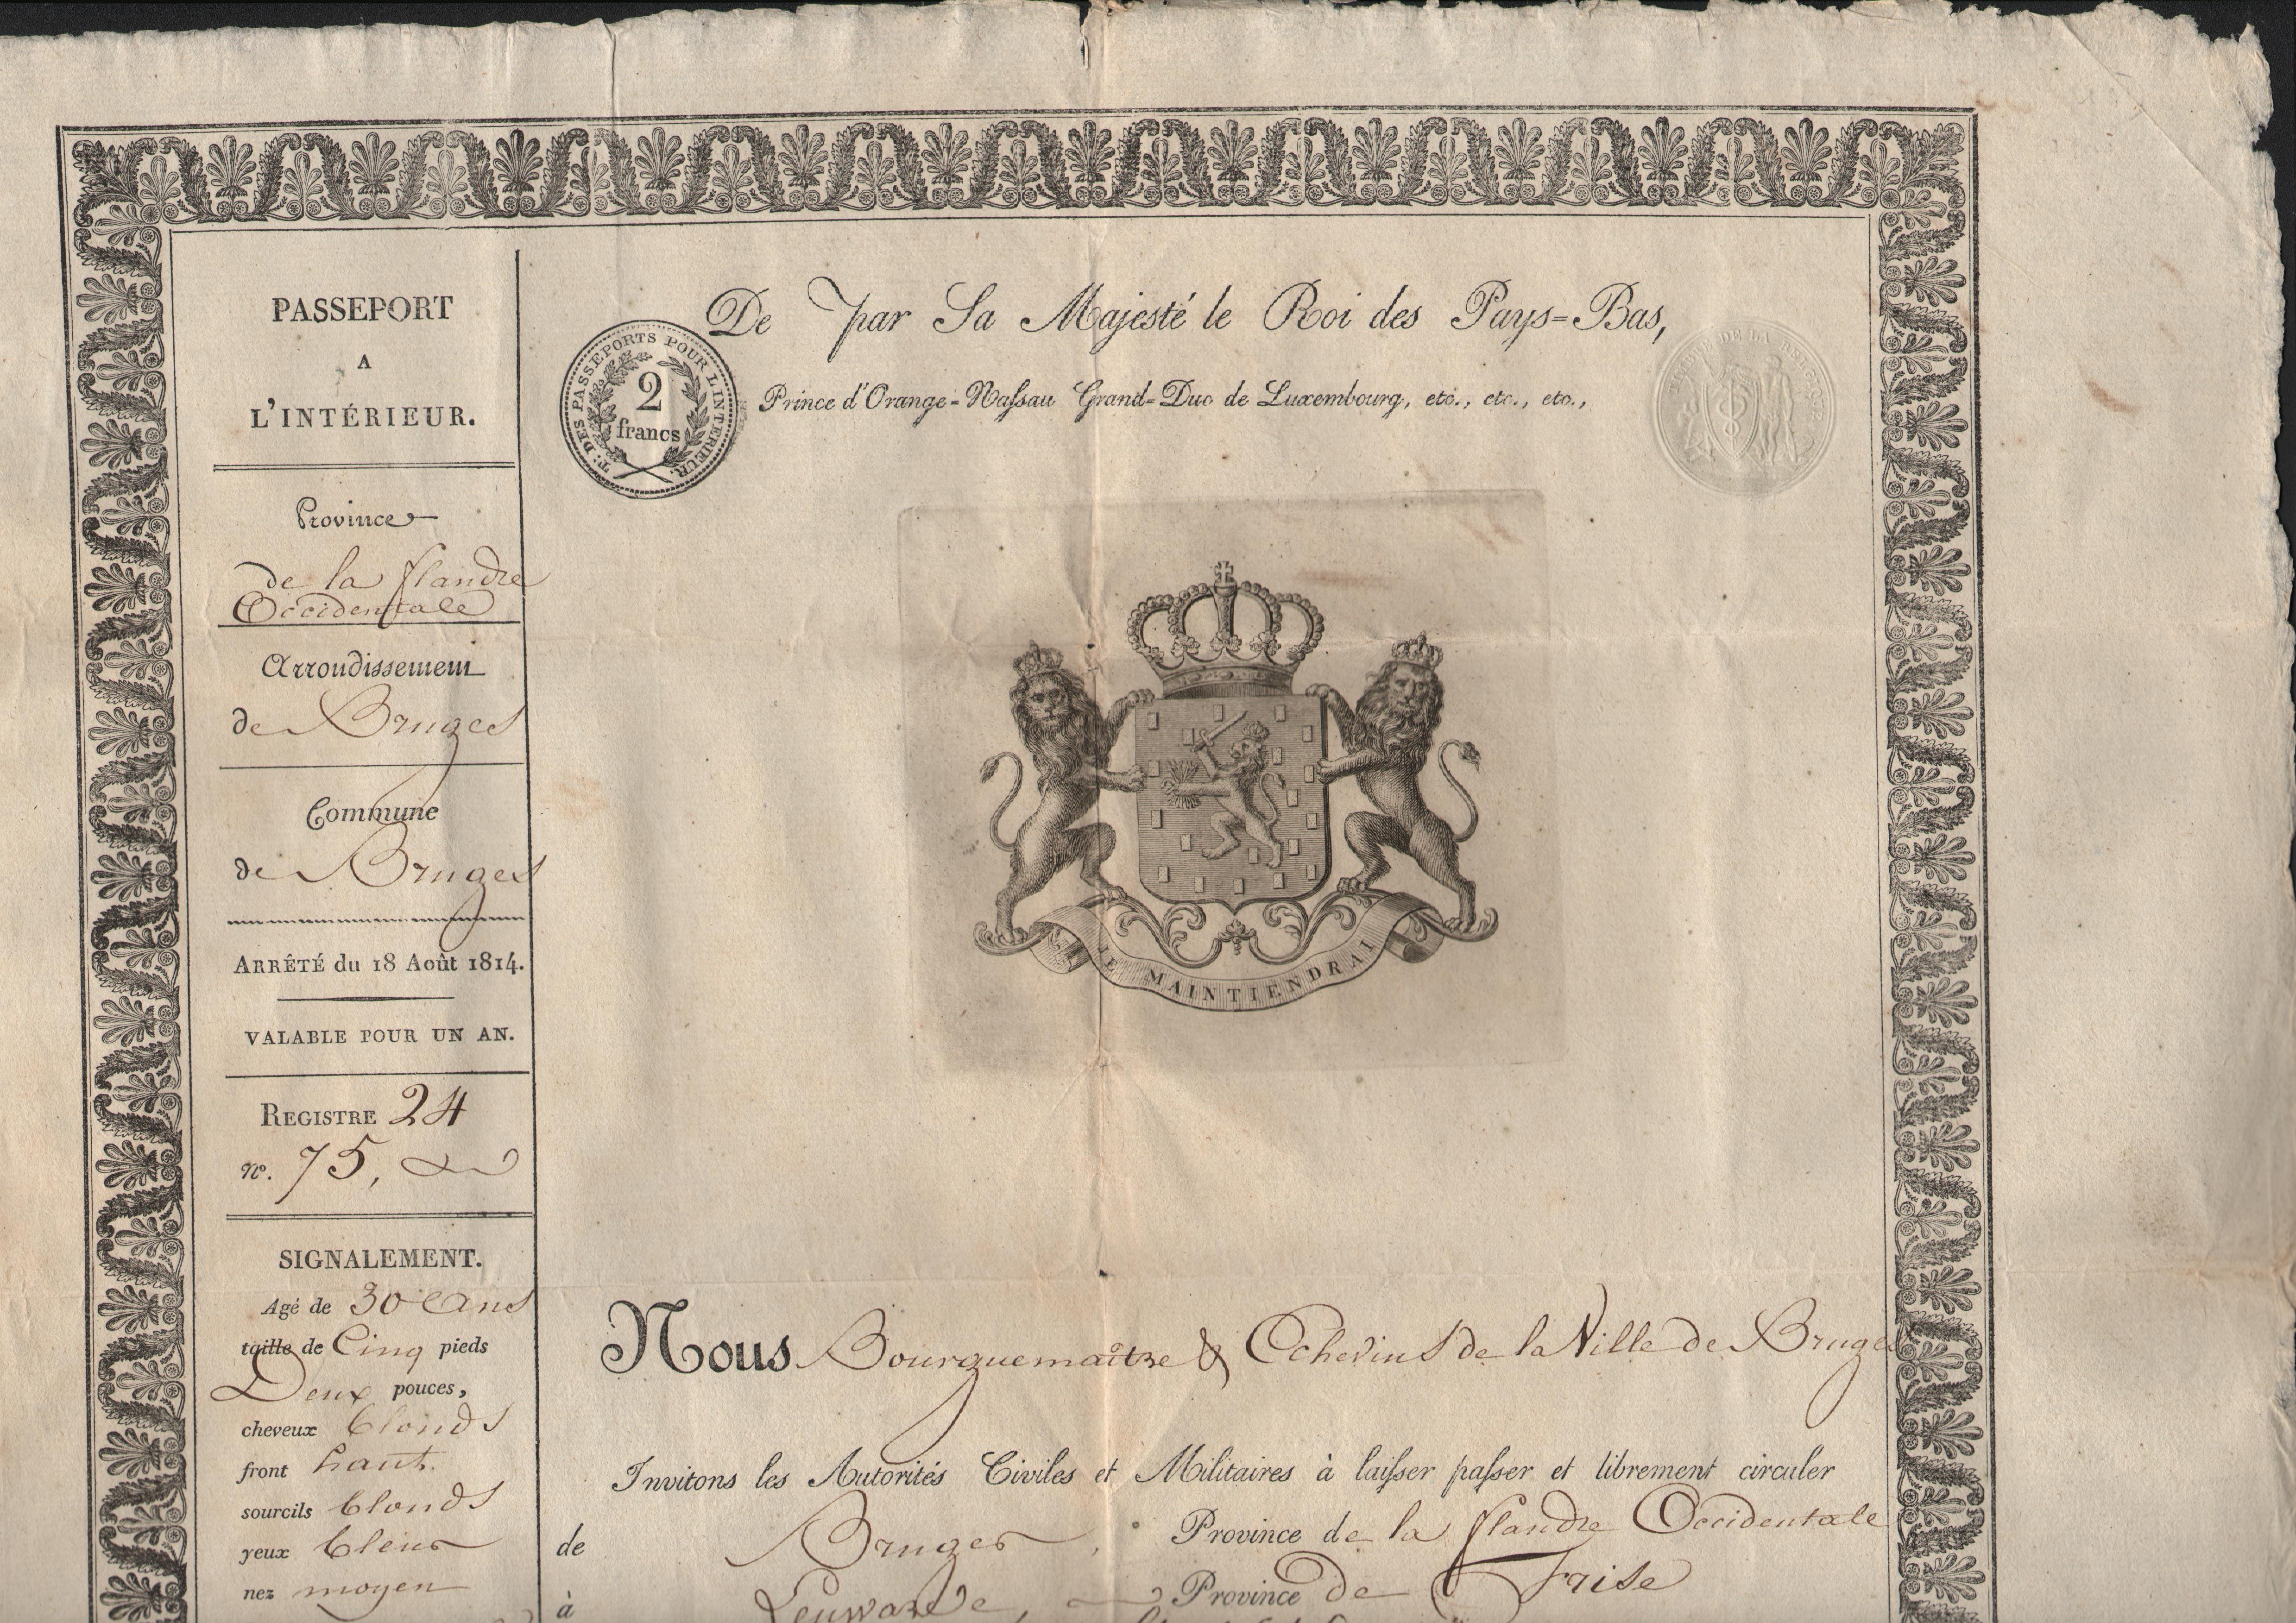 PASSEPORT
A
L'INTÉRIEUR.
Province
de la flandre
Occidentale
Arrondissement
de Bruges
Commune
de Bruges
ARRÊTÉ du 18 Août 1814.
VALABLE POUR UN AN.
REGISTRE 24
N°. 75,
SIGNALEMENT.
Agé de 30 Ans
taille de Cinq pieds
Deux pouces,
cheveux blonds
front haut.
sourcils blonds
yeux bleus
nez moyen
De par Sa Majesté le Roi des Pays-Bas,
Prince d'Orange-Nassau Grand-Duc de Luxembourg, etc., etc., etc.,
T. DES PASSEPORTS POUR L'INTERIEUR.
2
francs
DE LA
JE MAINTIENDRAI
Nous Bourguemaitre & Echevins de la Ville de Bruges
Invitons les Autorités Civiles et Militaires à laisser passer et librement circuler
de Bruges, Province de la flandre Occidentale
à Leuwarde, Province de Frise